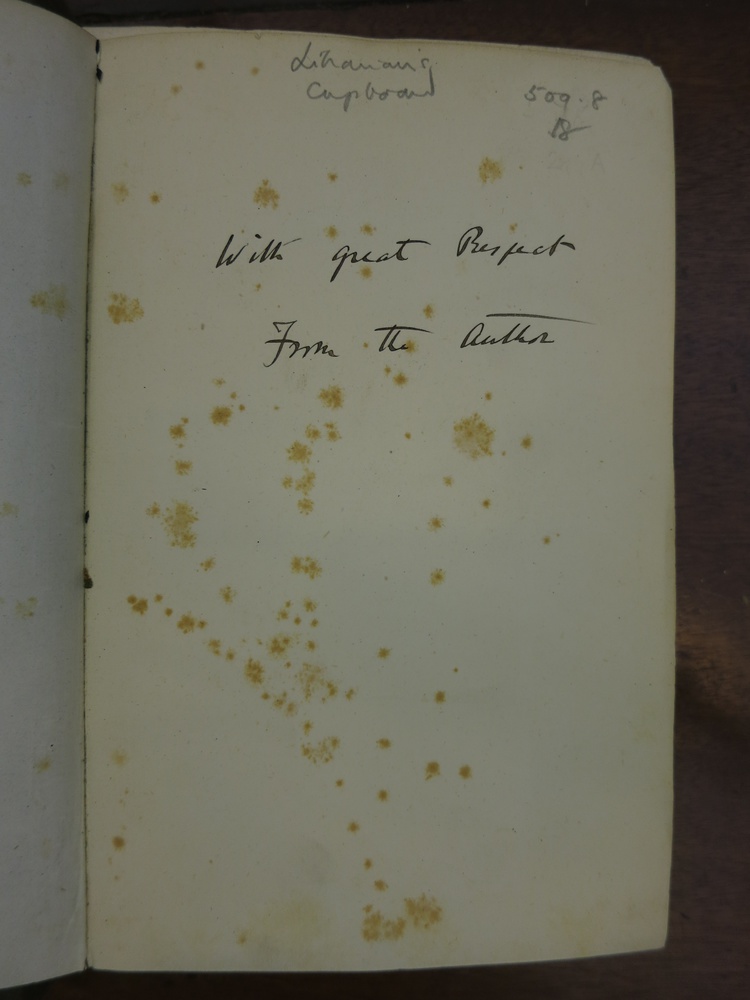 Librarian's
Cupboard
509.8
With great Respect
From the Author